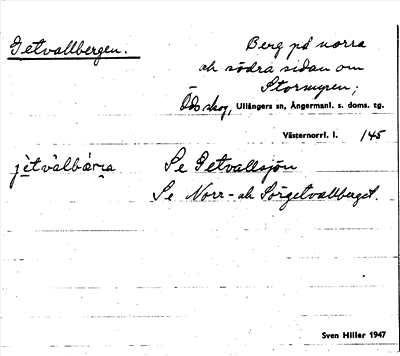 Getvallbergen.
Berg på norra
och södra sidan om
Stormyren;
Ödsskog, Ullångers sn, Ångermanl. s. doms. tg.
Västernorrl. l. 145
Se Getvallsjön
Se Norr- och Sörgetvallberget.
Sven Hiller 1947